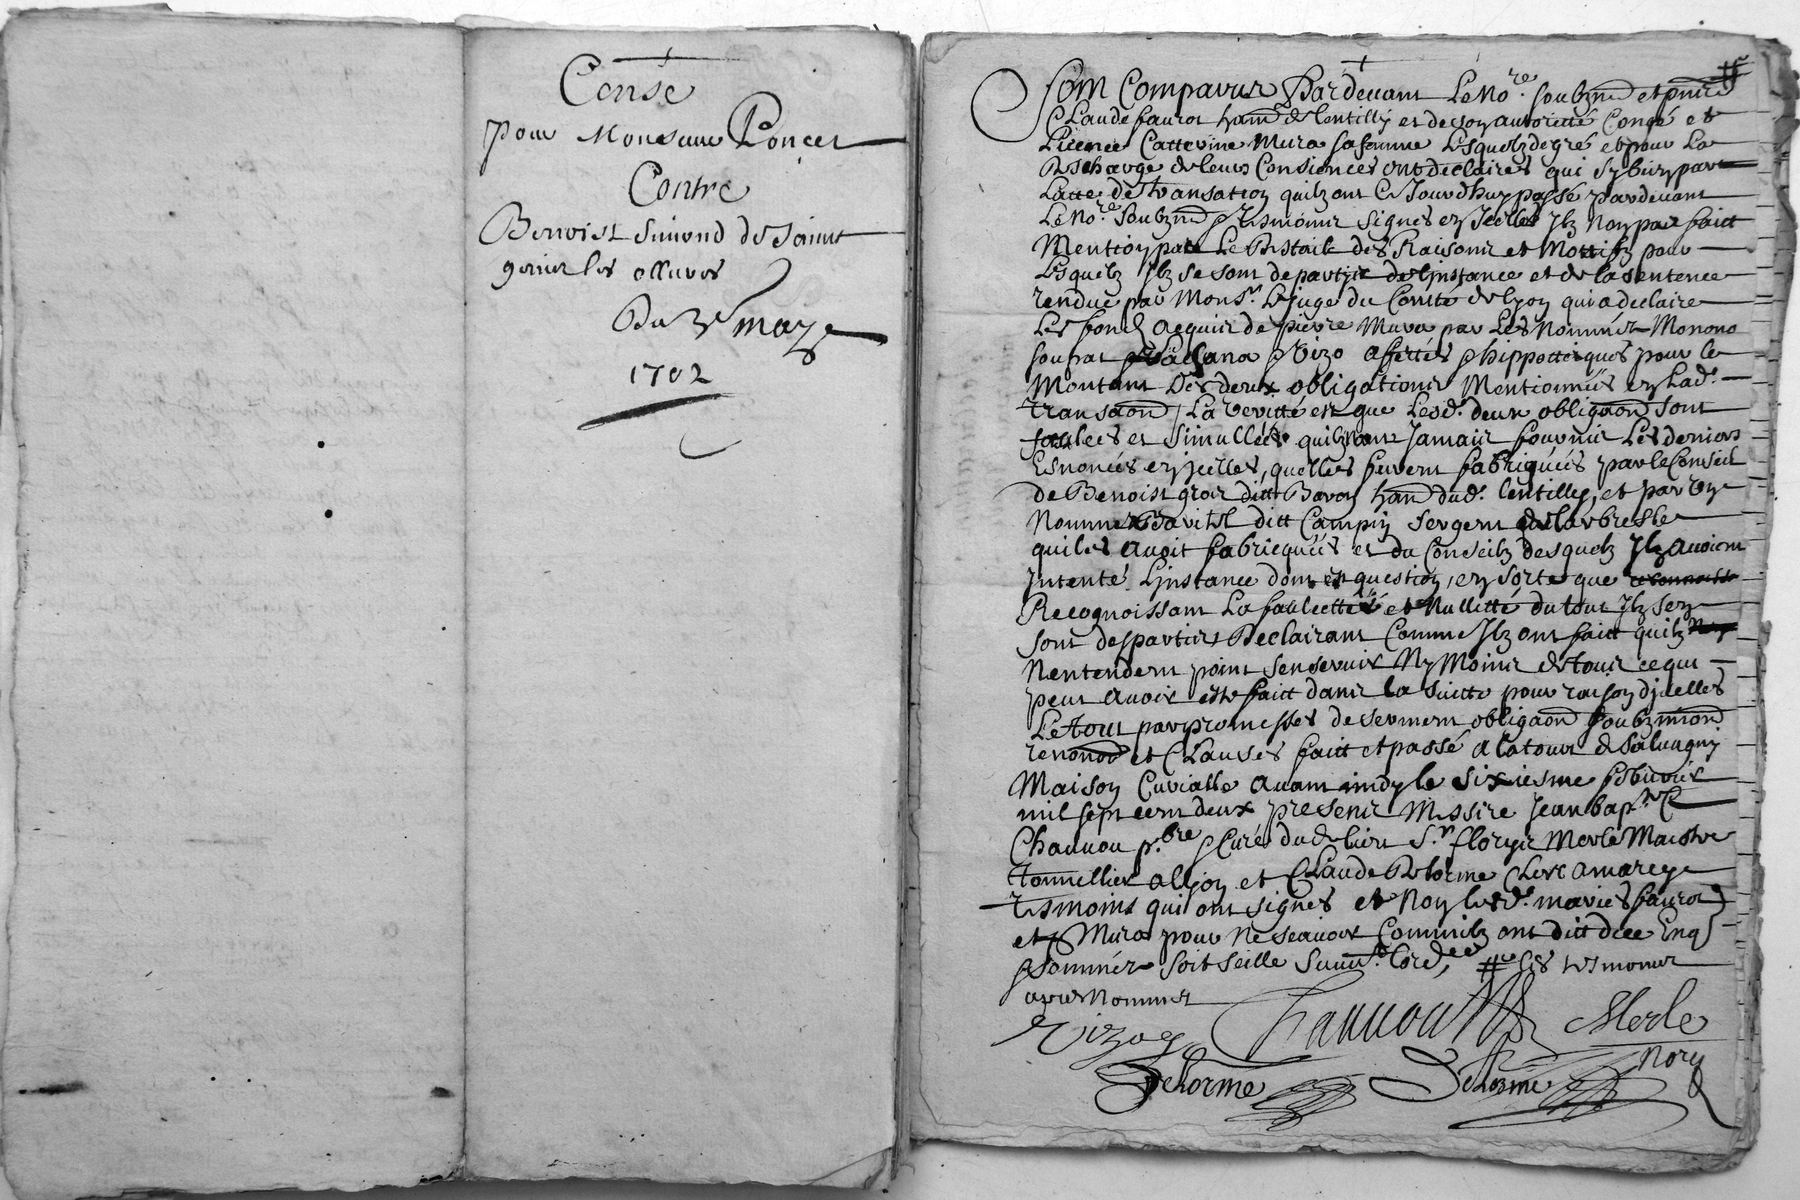 Cense
pour Monsieur Poncet
Contre
Benoist Simond de Saint
genier les ollieres
Du 3e may
1702
Sont Comparus Pardevant Le No.re soubzne et pnts
Claude faurot hant de lentilly et de son autorité Congé et
Licence Catterine Mura sa femme Lesquelz de gré et pour La
Descharge de leurs Consiences ont declaires qui
Latte de transation quilz ont Cejourdhuy passé pardevant
Le No.re soubzne tesmoins signes en Icelles Ilz Non pas faict
Mention par Le des Raisons et Mottifz pour
Lesquelz Ilz se sont departir de linstance et de la sentence
rendue par Mons.r Le juge du Comte de lyon qui a declaire
Les fondz acquis de pierre Mura par Les Nommés Monono
Vizo afertés hippottecques pour le
Montant Des deux obligations Mentionnées en Lad.e
transaon La Veritté est que Lesd. deux obligaons sont
faulces et simullées quilz nont Jamais fournir Les deniers
Esnoncés en jcelles, quelles furent fabriquées par le Conseil
de Benoist gros ditt Baron hant dud. lentilly, et par un
Nommé ditt Campin sergent de larbresle
qui les avoit fabricquées et du Conseilz desquelz Ilz avoient
Intenté Linstance dont est question, en sorte que
Recognoissant La faulcetté et Nullitté du tout Ilz sen
sont despartirs Declairant Comme Ilz ont faict quilz
Nentendent point senservir Ny Moins de tout ce qui
peut avoir esté faict dans la suitte pour raison djcelles
Le tout par promesses de serment obligaon soubzmion
renonon et Clauses faict et passé a latour de salvagny
Maison Curialle avant midy le sixiesme febvrier
mil sept cent deux presents Messire Jean bap.te
Chanuou p.bre Curé dud. lieu S.r floris Merle Maistre
tonnellier a Lyon et Claude Delorme Clerc a marcy
tesmoins qui ont signés et Non lesd. mariés faurot
et Mura pour Ne scavoir Comme ilz ont ditt dce Enq
sommés soit seillé suiv.t Lord.ce, # les tesmoins
apres Nommes
Vizo Chanuou Merle
Delorme Delorme Nore